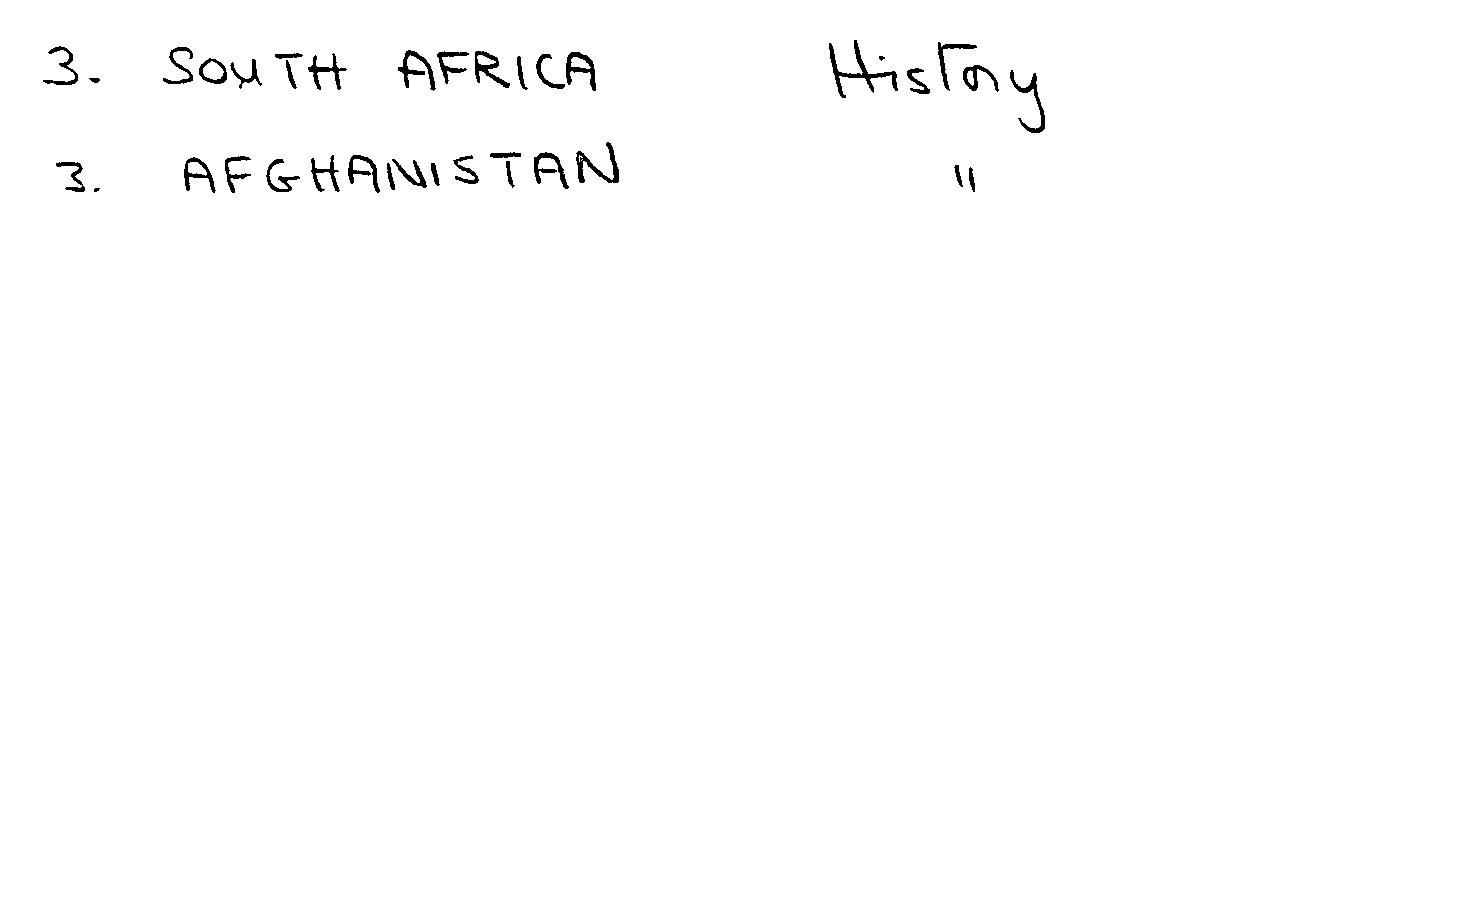 3. SOUTH AFRICA History
3. AFGHANISTAN "